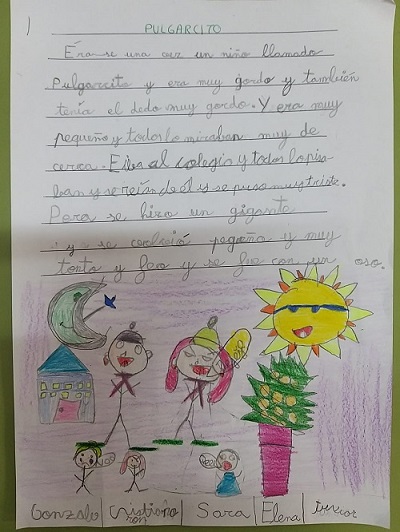 PULGARCITO
Erase una vez un niño llamado
Pulgarcito y era muy gordo y también
tenía el dedo muy gordo. Y era muy
pequeño y todos lo miraban muy de
cerca. Él iba al colegio y todos lo pisa
ban y se reían de él y se puso muy triste.
Pero se hizo un gigante
y se volvió pequeño y muy
tonto y feo y se fue con un oso.
Gonzalo Sara Elena